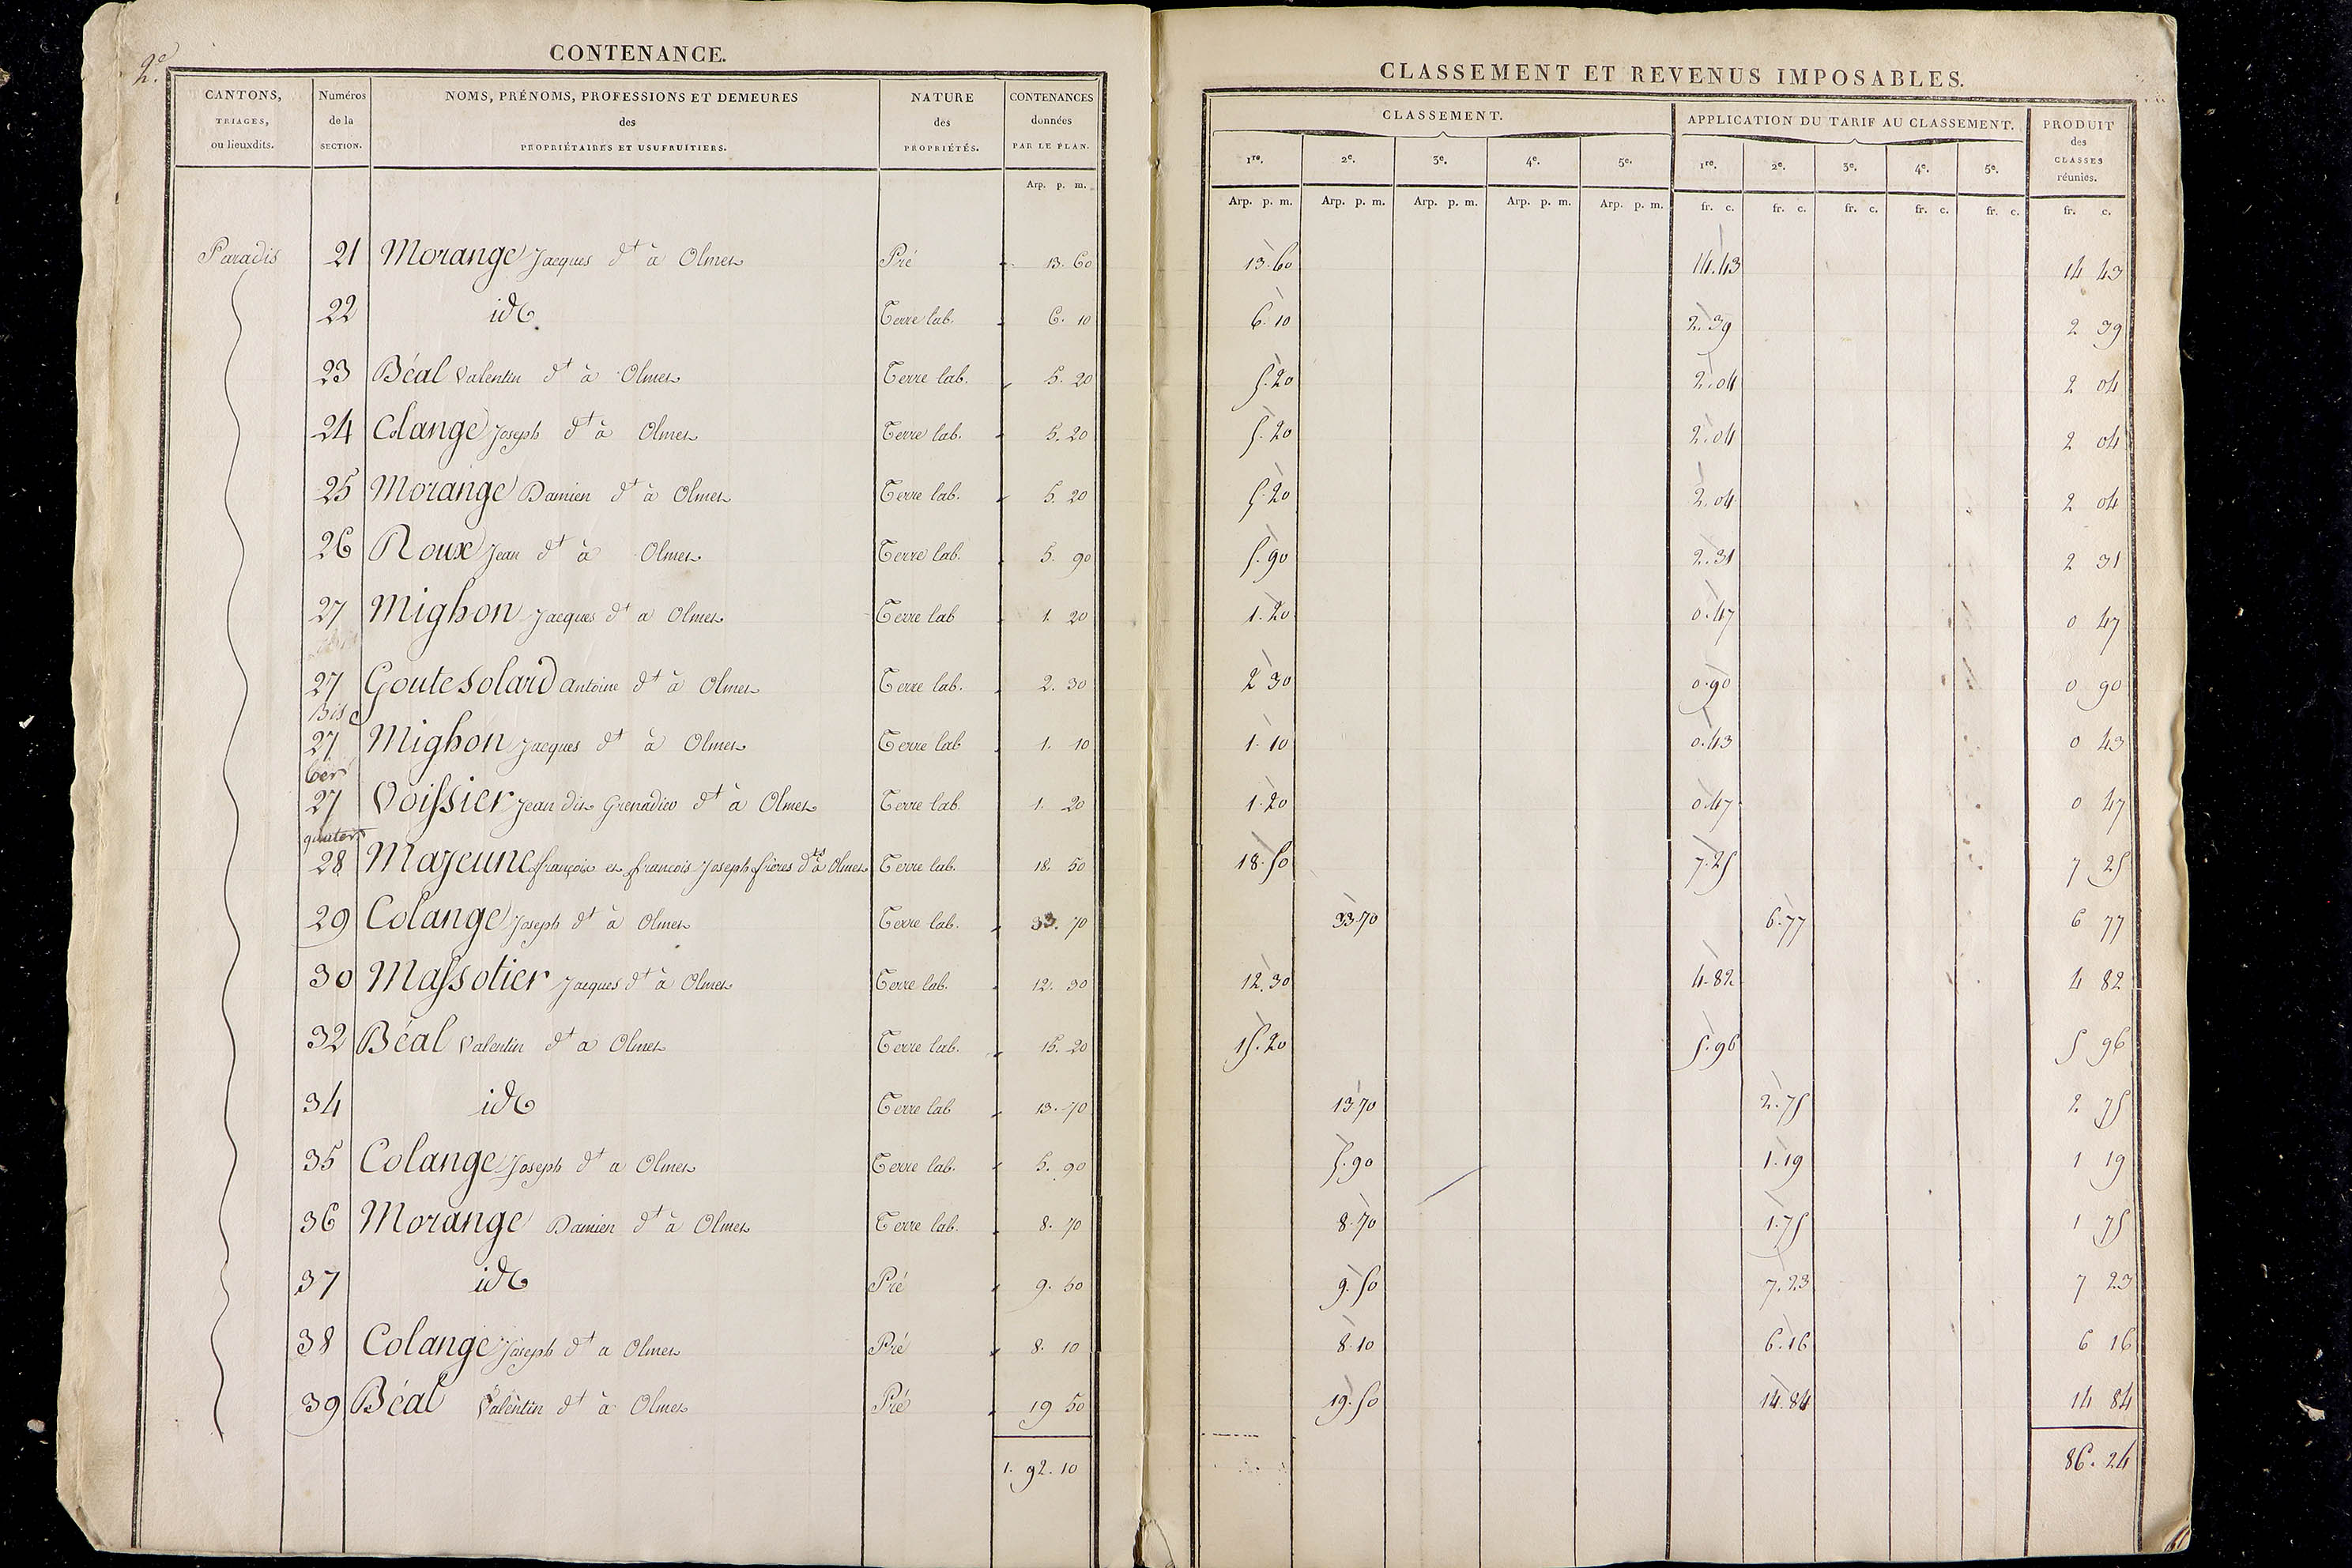 2.e
CONTENANCE.
CANTONS, TRIAGES, ou lieuxdits. Numéros de la SECTION. NOMS, PRÉNOMS, PROFESSIONS ET DEMEURES des PROPRIÉTAIRES ET USUFRUITIERS. NATURE des PROPRIÉTÉS. CONTENANCES données PAR LE PLAN.
Arp. p. m.
CLASSEMENT ET REVENUS IMPOSABLES.
CLASSEMENT. APPLICATION DU TARIF AU CLASSEMENT. PRODUIT des CLASSES réunies.
1re. 2e. 3e. 4e. 5e. 1re. 2e. 3e. 4e. 5e.
Arp. p. m. Arp. p. m. Arp. p. m. Arp. p. m. Arp. p. m. fr. c. fr. c. fr. c. fr. c. fr. c. fr. c.
Paradis 21 Morange Jacques dt à Olmet Pré 13. 60 13.60 14.43 14 43
22 id Terre lab. 6. 10 6.10 2.39 2 39
23 Béal Valentin dt à Olmet Terre lab. 5. 20 5.20 2.04 2 04
24 Colange Joseph dt à Olmet Terre lab. 5. 20 5.20 2.04 2 04
25 Morange Damien dt à Olmet Terre lab. 5. 20 5.20 2.04 2 04
26 Roux Jean dt à Olmet Terre lab. 5. 90 5.90 2.31 2 31
27 Mighon Jacques dt a Olmet Terre lab 1. 20 1.20 0.47 0 47
27 Bis Goutesolard Antoine dt à Olmet Terre lab. 2. 30 2 30 0.90 0 90
27 ter Mighon Jacques dt à Olmet Terre lab 1. 10 1.10 0.43 0 43
27 quater Voissier Jean dit Grenadier dt à Olmet Terre lab. 1. 20 1.20 0.47 0 47
28 Majeune françois et françois Joseph frères dts à Olmet Terre lab. 18. 50 18.50 7.25 7 25
29 Colange Joseph dt à Olmet Terre lab. 33. 70 33.70 6.77 6 77
30 Massotier Jacques dt à Olmet Terre lab. 12. 30 12.30 4.82 4 82
32 Béal Valentin dt a Olmet Terre lab. 15. 20 15.20 5.96 5 96
34 id Terre lab 13. 70 13.70 2.75 2 75
35 Colange Joseph dt a Olmet Terre lab. 5. 90 5.90 1.19 1 19
36 Morange Damien dt à Olmet Terre lab. 8. 70 8.70 1.75 1 75
37 id Pré 9. 50 9.50 7.23 7 23
38 Colange Joseph dt a Olmet Pré 8. 10 8.10 6.16 6 16
39 Béal Valentin dt à Olmet Pré 19 50 19.50 14.84 14 84
1. 92. 10 86. 24